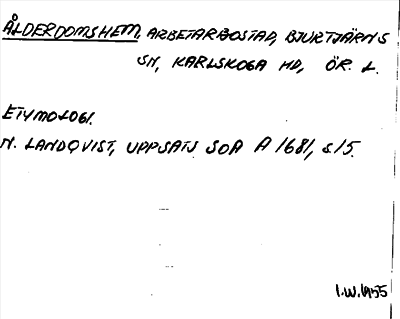 ÅLDERDOMSHEM, ARBETARBOSTAD, BJURTJÄRNS
SN, KARLSKOGA HD, ÖR. L.
ETYMOLOGI.
N. LANDQVIST, UPPSATS SOA A 1681, s. 15.
I.W. 1955